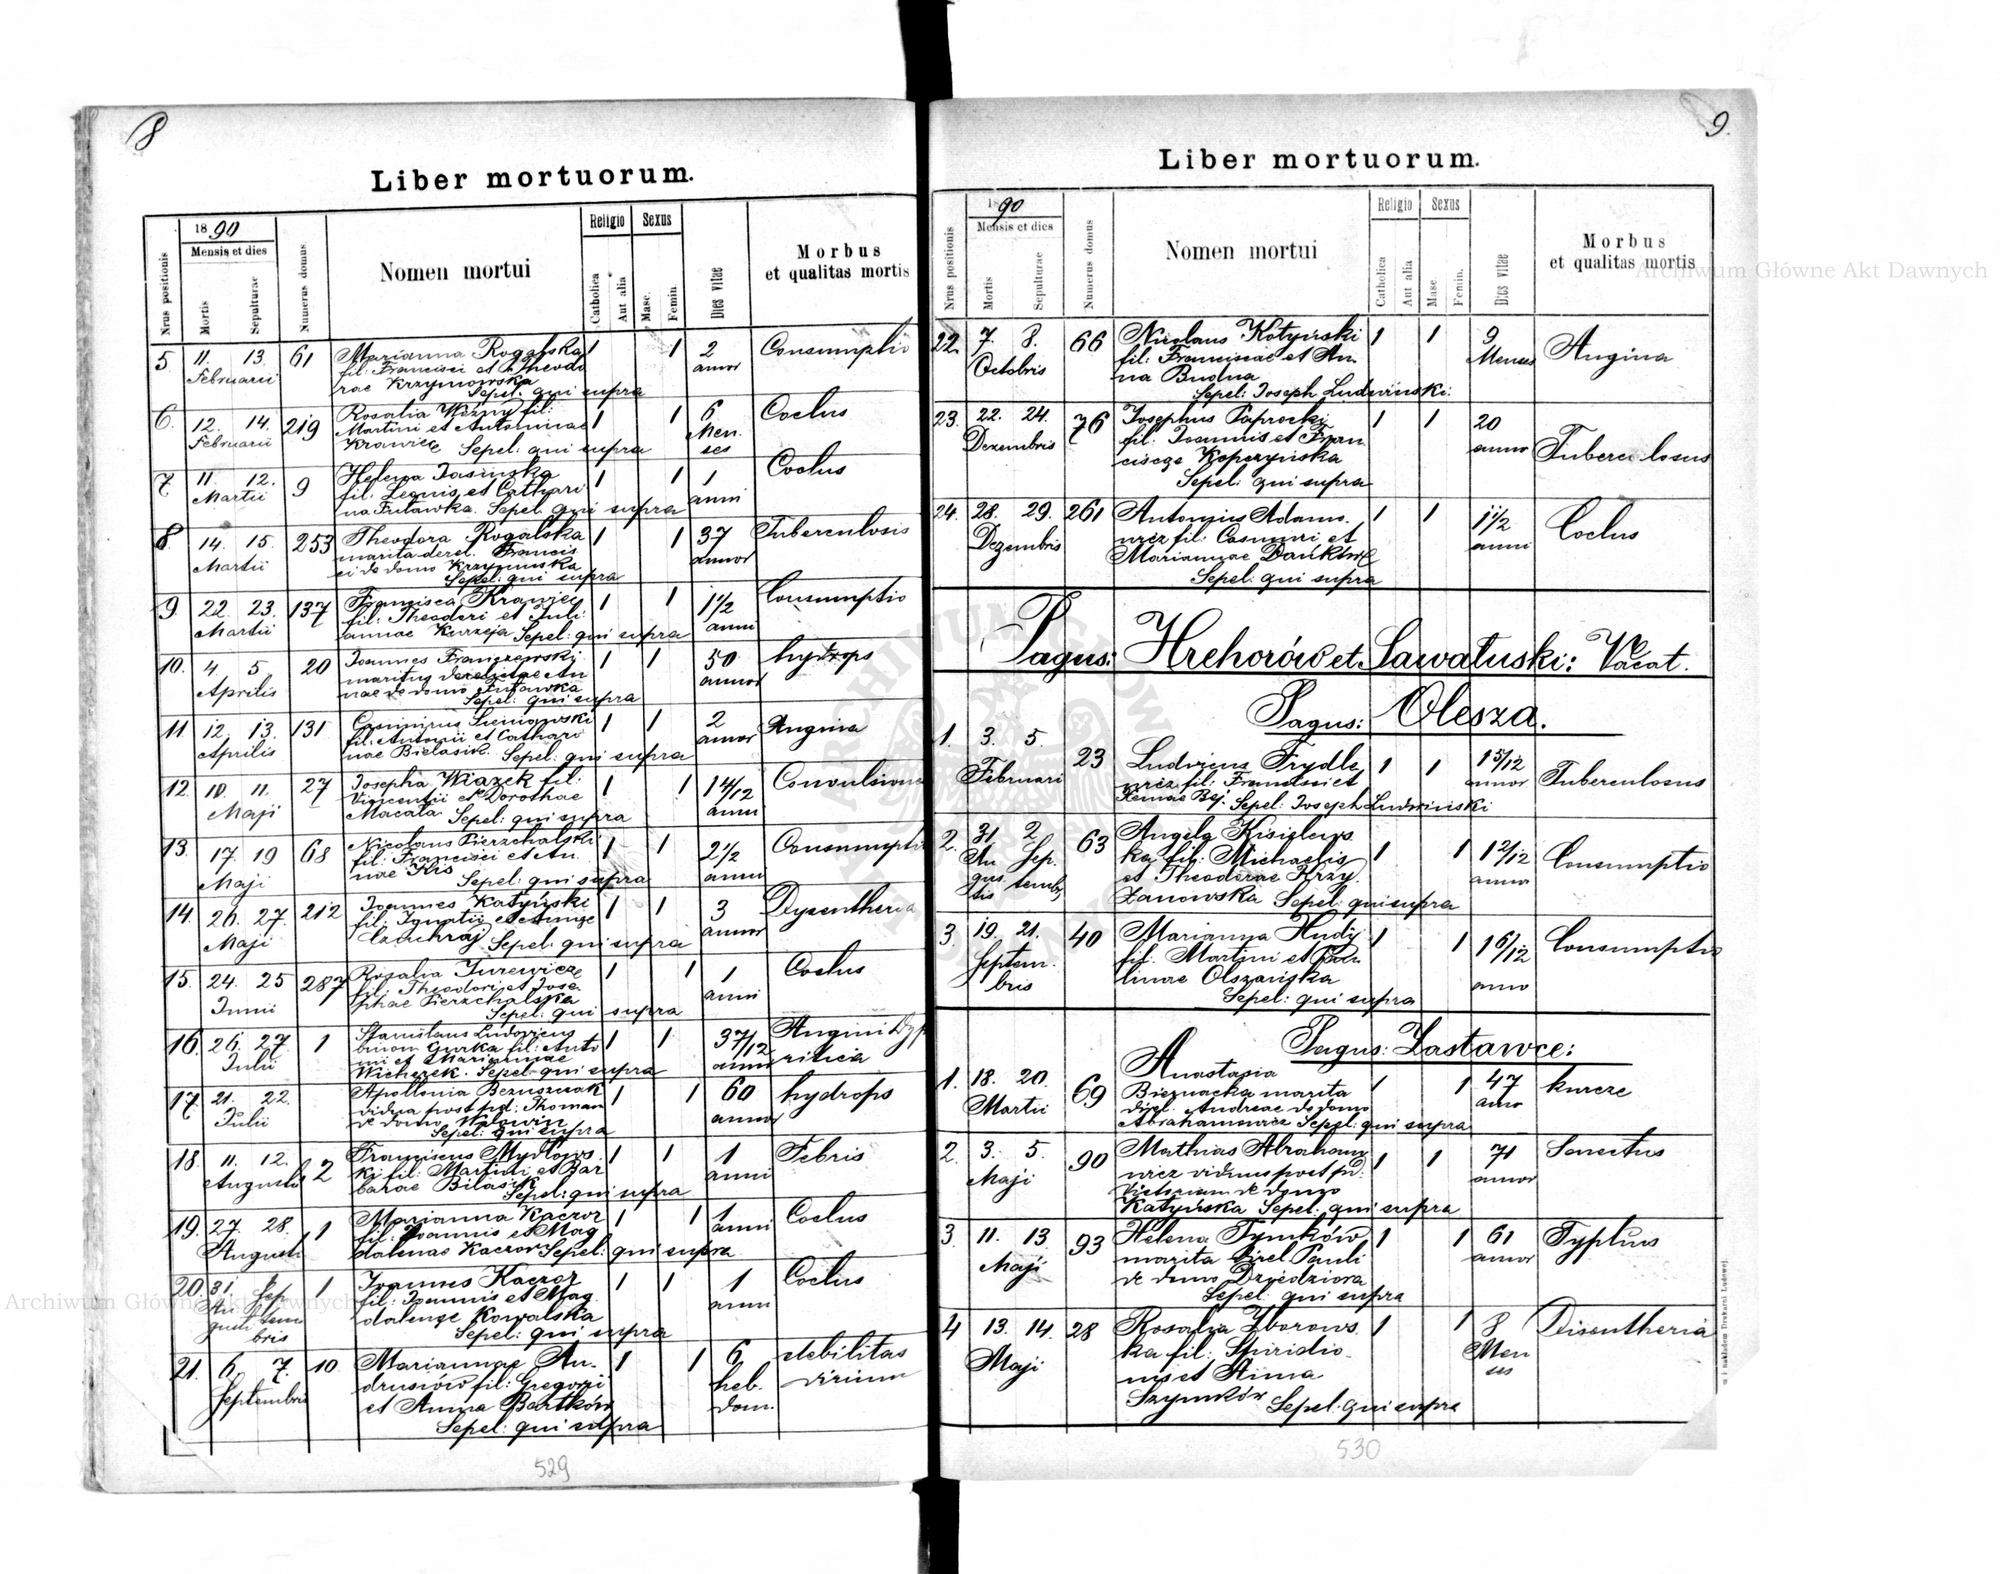 8
Liber mortuorum.
Nrus positionis
1890
Mensis et dies
Mortis
Sepulturae
Numerus domus
Nomen mortui
Religio
Catholica
Aut alia
Sexus
Masc.
Femin.
Dies vitae
Morbus
et qualitas mortis
5 11. 13. Februarii 61 Marianna Rogalska 1 1 2 annor Consumptio
fil: Francisci et Theodo
rae Krzyniowska
Sepel: qui supra
6. 12. 14. Februarii 219 Rosalia fil: 1 1 6 Menses Coclus
Martini et Antoninae
Krawiec Sepel: qui supra
7 11. 12. Martii 9 Helena Jasinska 1 1 1 anni Coclus
fil: Leonis et Cathari
na Futawka. Sepel: qui supra
8. 14. 15. Martii 253 Theodora Rogalska 1 1 37 annor Tuberculosis
marita derel. Francis
ci de domo
Sepel: qui supra
9 22. 23. Martii 137 Francisca Krawiec 1 1 1 1/2 anni Consumptio
fil: Theodori et Juli
annae Kurzeja Sepel: qui supra
10. 4. 5 Aprilis 20 Joannes Franczewski 1 1 50 annor hydrops
maritus derelictae An
nae de domo Futawka
Sepel: qui supra
11 12. 13. Aprilis 131 Casimirus 1 1 2 annor Angina
fil: Antonii et Cathari
nae Bielasik. Sepel: qui supra
12. 10. 11. Maji 27 Josepha Wiazek fil: 1 1 1 4/12 anni
Vincentii et Dorotheae
Macala Sepel: qui supra
13. 17. 19 Maji 68 Nicolaus Pierzchalski 1 1 2 1/2 anni Consumptio
fil: Francisci et An
nae Kis Sepel: qui supra
14. 26. 27. Maji 212 Joannes Katyński 1 1 3 annor Dysentheria
fil: Ignatii et Annae
Sepel: qui supra
15. 24. 25 Junii 287 Rosalia Jurewicz 1 1 1 anni Coclus
fil: Theodori et Jose
phae Pierzchalska
Sepel: qui supra
16. 26. 27. Julii 1 Stanislaus Ludovicus 1 1 3 7/12 anni Angini
fil: Anto
nii et Mariannae
Wicherek. Sepel: qui supra
17. 21. 22. Julii Apollonia 1 1 60 annor hydrops
vidua post pd: Thoman
de domo
Sepel: qui supra
18. 11. 12. Augusti 2 Franciscus Mydlows 1 1 1 anni Febris
ki fil: Martini et Bar
barae Bilasik
Sepel: qui supra
19. 27. 28. Augusti 1 Marianna Kaczor 1 1 1 anni Coclus
fil: Joannis et Mag
dalenae Kaczor Sepel: qui supra
20. 31. Augusti Septembris 1 Joannes Kaczor 1 1 1 anni Coclus
fil: Joannis et Mag
dalenae Kowalska
Sepel: qui supra
21. 6. 7. Septembris 10. Mariannae An- 1 1 6 hebdom. debilitas virium
drusiów fil: Gregorii
et Anna Bartków
Sepel: qui supra
529
9.
Liber mortuorum.
Nrus positionis
1890
Mensis et dies
Mortis
Sepulturae
Numerus domus
Nomen mortui
Religio
Catholica
Aut alia
Sexus
Masc.
Femin.
Dies vitae
Morbus
et qualitas mortis
22. 7. 8. Octobris 66 Nicolaus Kotyński 1 1 9 Menses Angina
fil: Franciscae et An
na Budna
Sepel: Joseph Ludwinski:
23. 22. 24. Dezembris 76 Josephus Paprocki 1 1 20 annor Tuberculosus
fil: Joannis et Fran
cisca Kopczyńska
Sepel: qui supra
24. 28. 29. Dezembris 261 Antonius Adamo 1 1 1 1/2 anni Coclus
wicz fil: Casimiri et
Mariannae
Sepel: qui supra
Pagus: Hrehorów et Sawaluski: Vacat.
Pagus: Olesza.
1. 3. 5. Februari 23 Ludvicus Frydle 1 1 1 5/12 annor Tuberculosus
wicz fil: Francisci et
Bej. Sepel: Joseph Ludwinski
2. 31. 2 Augustis Septembris 63 Angela Kisielews 1 1 1 2/12 annor Consumptio
ka fil: Michaelis
et Theodorae Krzy
żanowska Sepel: qui supra
3. 19. 21. Septembris 40 Marianna Hudÿ 1 1 1 6/12 anno Consumptio
fil: Martini et Pau
linae Olszańska
Sepel: qui supra
Pagus: Zastawce:
1. 18. 20. Martii 69 Anastasia 1 1 47 anno kurcze
Bieznacka marita
direl. Andreae de domo
Abrahamowicz Sepel: qui supra
2. 3. 5. Maji 90 Mathias Abrahamo 1 1 71 annor Senectus
wicz viduus post pd:
Victoriam de domo
Katyńska Sepel: qui supra
3 11. 13. Maji 93 Helena Tymków 1 1 61 annor Typhus
marita direl Pauli
de domo Dziedziora
Sepel: qui supra
4 13. 14. Maji 28 Rosalia Zborows 1 1 8 Menses Disentheria
ka fil: Spiridio
nis et Anna
Szymków Sepel: qui supra
530
Archiwum Główne Akt Dawnych
Archiwum Główne Akt Dawnych